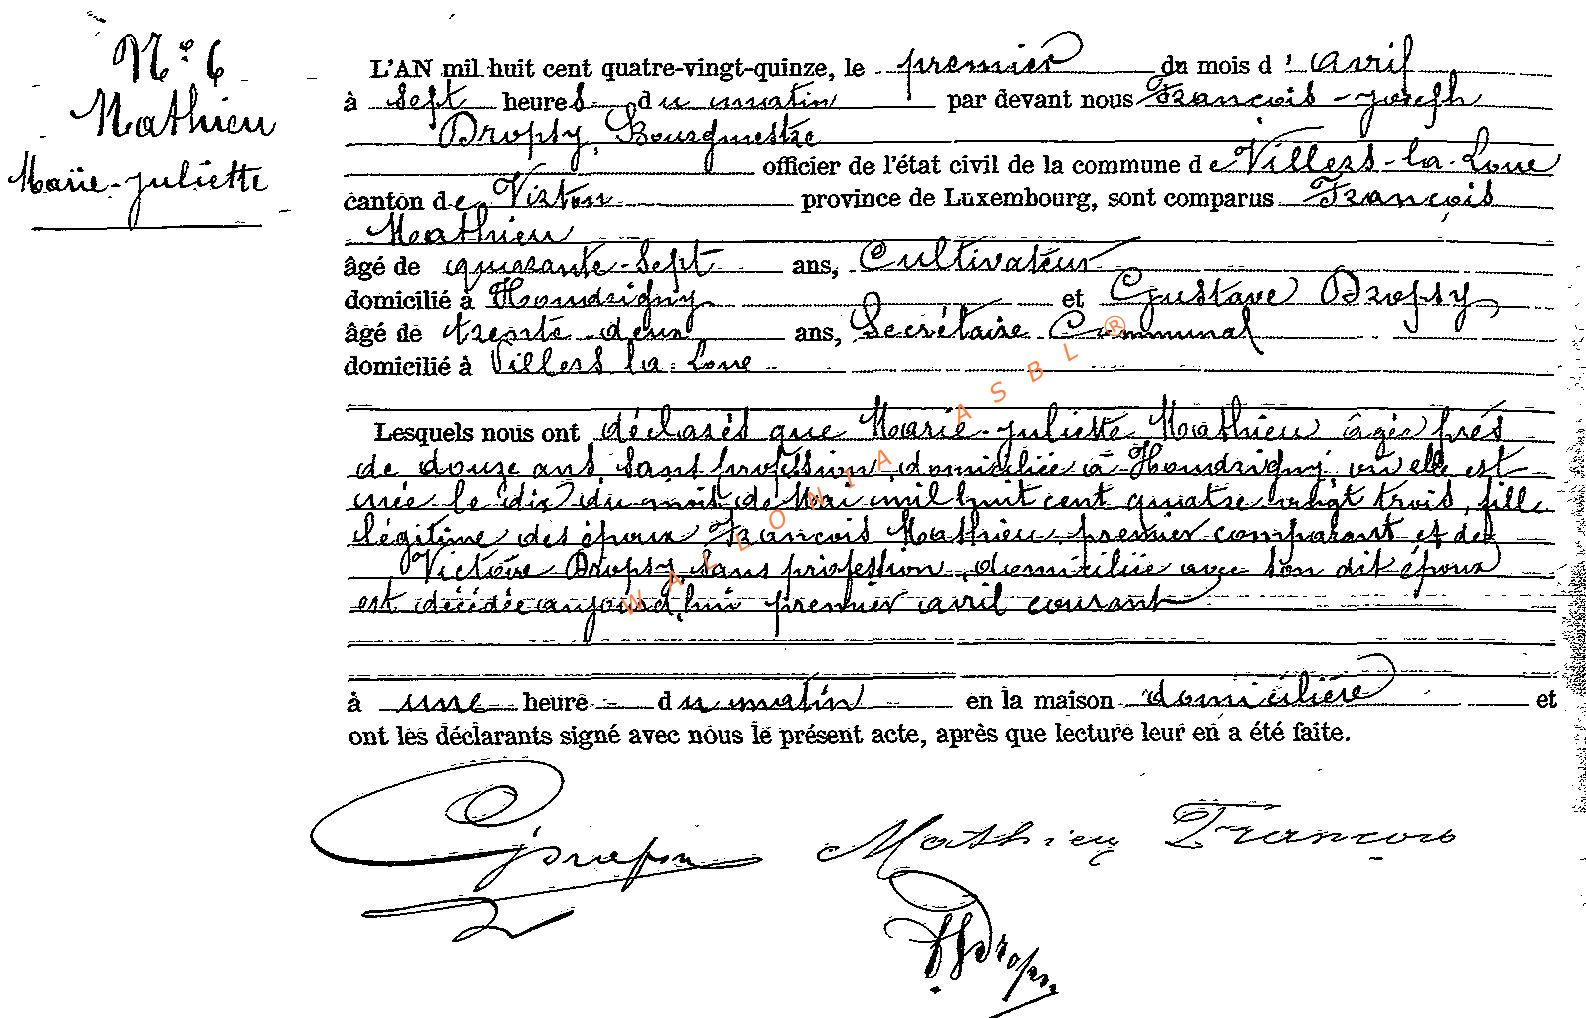 N° 6
Mathieu
Marie-Juliette
L'AN mil huit cent quatre-vingt-quinze, le premier du mois d'avril
à sept heures du matin par devant nous François-Joseph
Dropsy, Bourgmestre
officier de l'état civil de la commune de Villers-la-Loue
canton de Virton province de Luxembourg, sont comparus François
Mathieu
âgé de quarante-sept ans, Cultivateur
domicilié à Houdrigny et Gustave Dropsy
âgé de trente-deux ans, Secrétaire Communal
domicilié à Villers-la-Loue
Lesquels nous ont déclarés que Marie-Juliette Mathieu âgée près
de douze ans, sans profession, domiciliée à Houdrigny, où elle est
née le dix du mois de Mai mil huit cent quatre vingt trois, fille
légitime des époux François Mathieu premier comparant et de
Victoire Dropsy, sans profession, domiciliée avec son dit époux
est décédée aujourd'hui premier avril courant
à une heure du matin en la maison domicilière et
ont les déclarants signé avec nous le présent acte, après que lecture leur en a été faite.
GDropsy Mathieu François
FJDropsy
WALLONIA ASBL ®